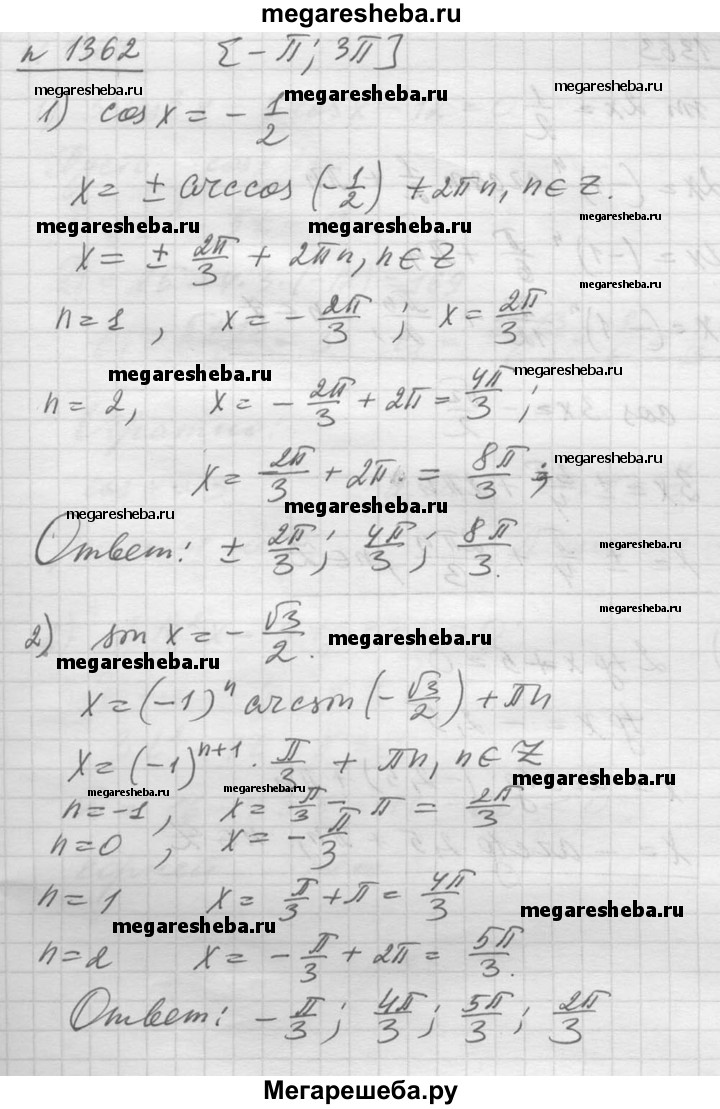 megaresheba.ru
n 1362 [-π; 3π]
megaresheba.ru megaresheba.ru
1) cos x = - 1/2
x = ± arccos (-1/2) + 2πn, n ∈ Z.
megaresheba.ru megaresheba.ru
x = ± 2π/3 + 2πn, n ∈ Z
n = 1, x = - 2π/3; x = 2π/3
megaresheba.ru megaresheba.ru
n = 2, x = - 2π/3 + 2π = 4π/3;
megaresheba.ru
x = 2π/3 + 2π. = 8π/3;
megaresheba.ru megaresheba.ru
Ответ: ± 2π/3; 4π/3; 8π/3.
megaresheba.ru
megaresheba.ru
2) sin x = - √3/2.
megaresheba.ru megaresheba.ru
x = (-1)^n arcsin (- √3/2) + πn
x = (-1)^{n+1} · π/3 + πn, n ∈ Z
megaresheba.ru megaresheba.ru megaresheba.ru
n = -1, x = π/3 - π = 2π/3
n = 0, x = - π/3
n = 1 x = π/3 + π = 4π/3
megaresheba.ru megaresheba.ru
n = 2 x = - π/3 + 2π = 5π/3.
Ответ: - π/3; 4π/3; 5π/3; 2π/3
Мегарешеба.ру